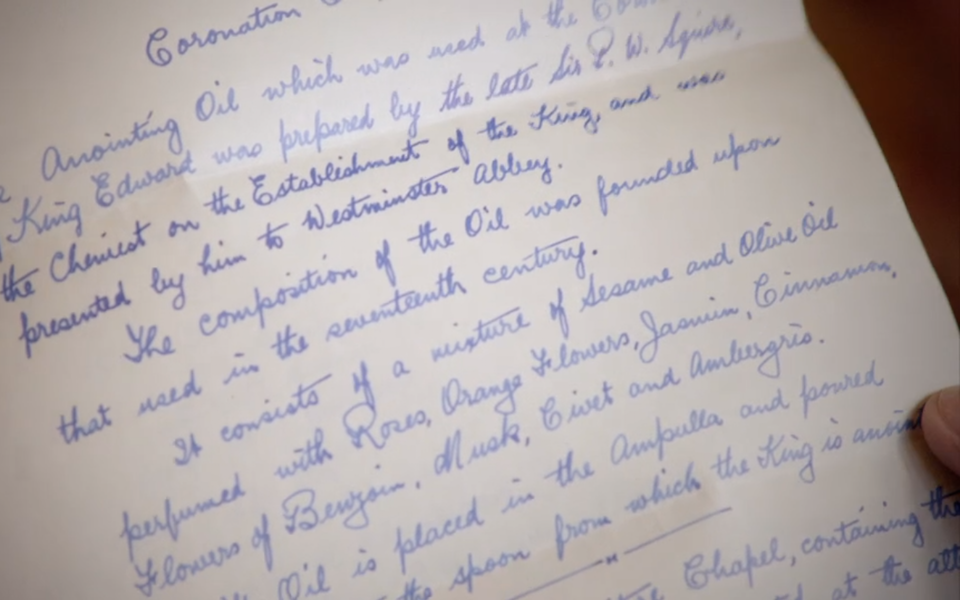 Coronation
Anointing Oil which was used at the
King Edward was prepared by the late Sir P. W. Squire,
the Chemist on the Establishment of the King, and was
presented by him to Westminster Abbey.
The composition of the Oil was founded upon
that used in the seventeenth century.
It consists of a mixture of Sesame and Olive Oil
perfumed with Roses, Orange Flowers, Jasmin, Cinnamon,
Flowers of Benzoin, Musk, Civet and Ambergris.
Oil is placed in the Ampulla and poured
the spoon from which the King is
Chapel, containing the
at the